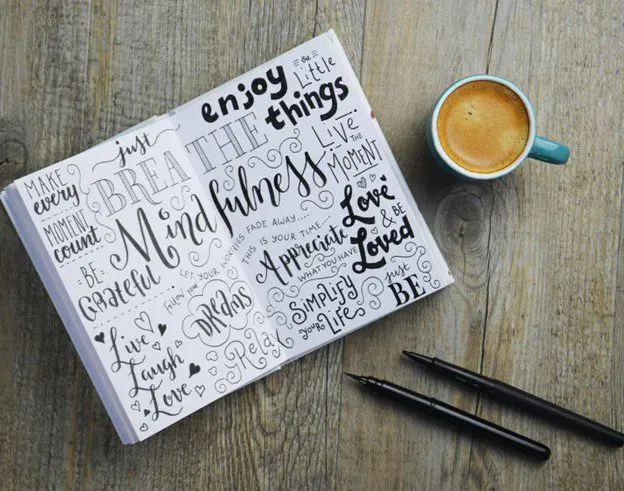 MAKE
every
MOMENT
count
-BE-
Grateful
Live
Laugh
Love
just
BREATHE
Mindfulness
LET YOUR
FADE AWAY....
THIS IS YOUR TIME...
follow your
DREAMS
Relax
enjoy
the
Little
things
LIVE
THE
MOMENT
Love
& BE
Loved
Appreciate
WHAT YOU HAVE
SIMPLIFY
your LIFE
just
BE